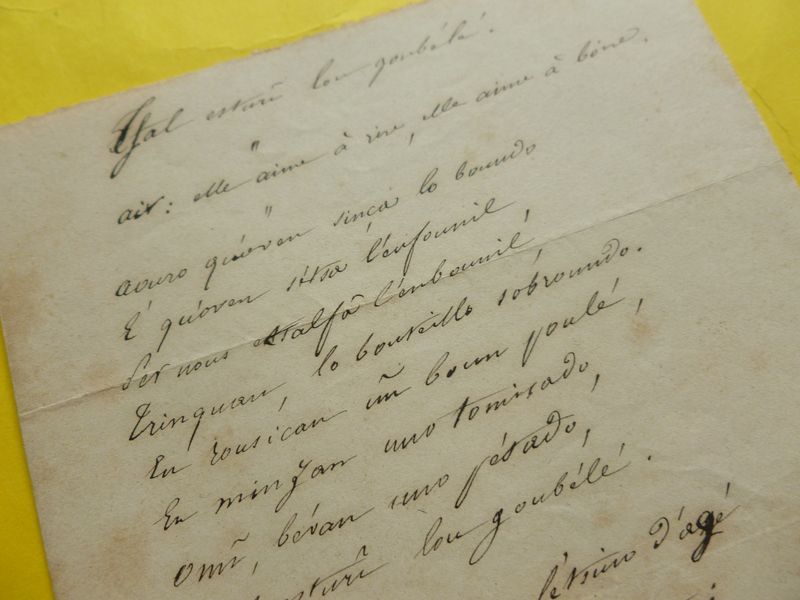 Yal esturï lou goubélé.
air: elle aime à rire, elle aime à boire.
aouro qu'öven sinça lo boundo
É qu'oven sétsa l'enfounil,
Per nous estalfâ l'enbounil,
Trinquan, lo bouteillo sobroundo.
En rousican ün boun poulé,
En minjan uno tomisado,
Omï, bévan uno pétado,
esturï lou goubélé.
d'agé